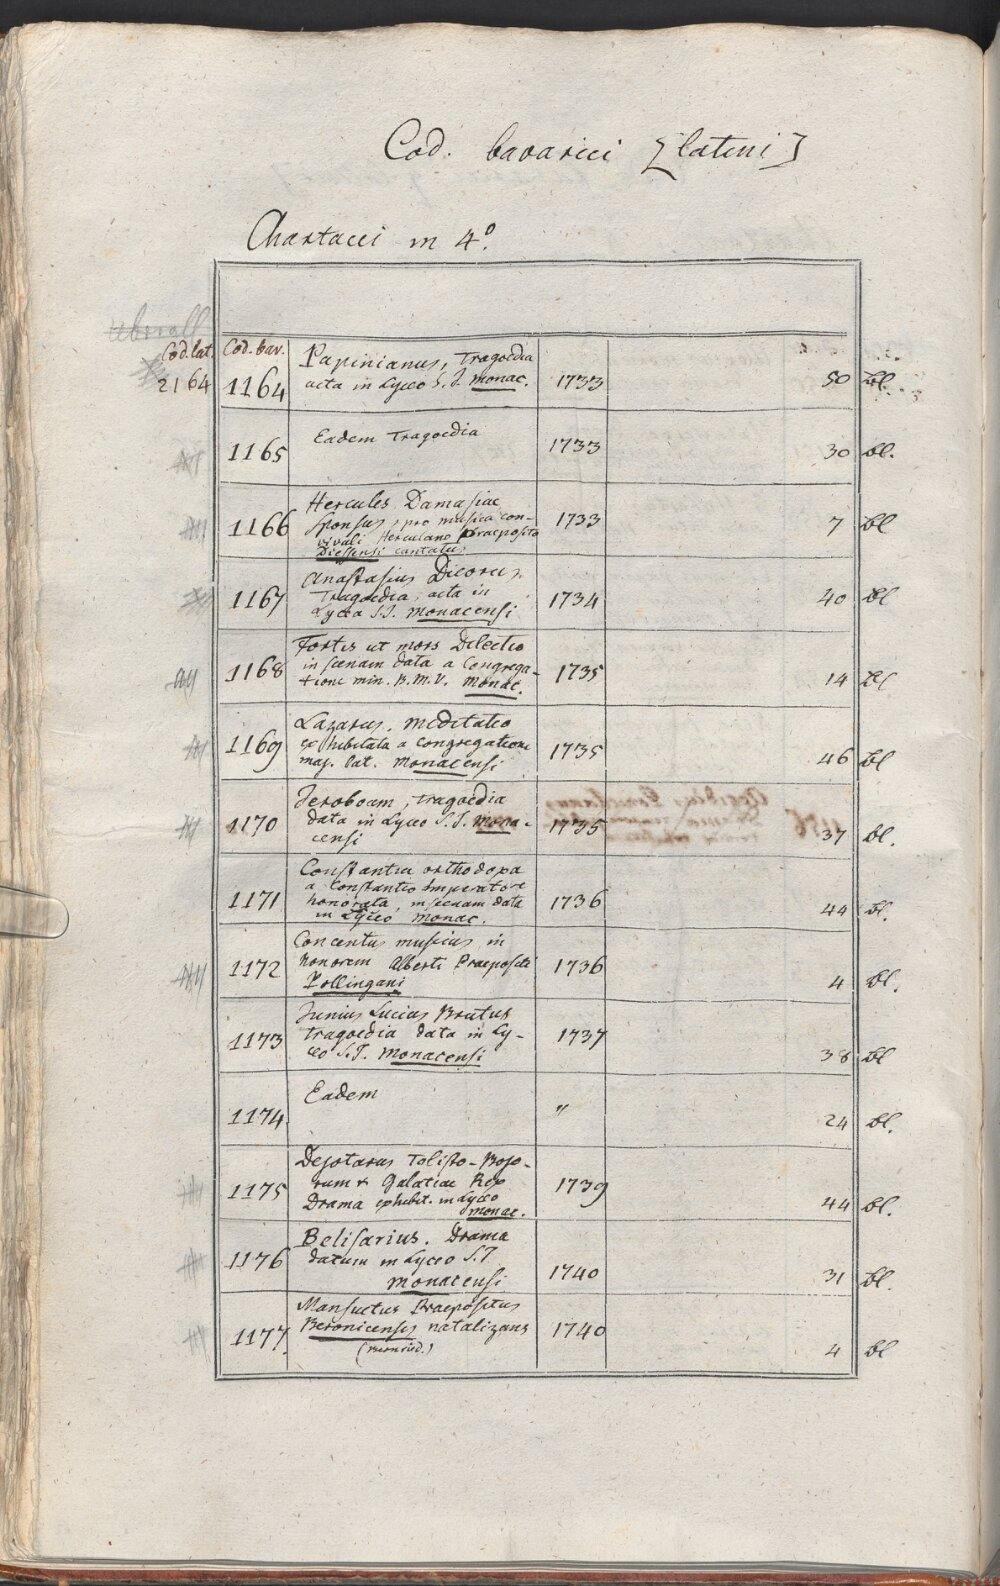 Cod. bavarici [latini]
Chartacei in 4º.
überall
Cod. lat. Cod. bav.
2164 1164 Papinianus, Tragoedia
acta in Lyceo S. J. Monac. 1733 50 bl.
1165 Eadem Tragoedia 1733 30 bl.
1166 Hercules Damasiae
sponsus, pro musica con-
vivali Herculano Praeposito
Diessensi cantatus 1733 7 bl
1167 Anastasius Dicorus.
Tragoedia, acta in
Lyceo S. J. Monacensi 1734 40 bl
1168 Fortis ut mors Dilectio
in scenam data a Congrega-
tione min. B. M. V. Monac. 1735 14 bl
1169 Lazarus. meditatio
exhibitata a congregatione
maj. lat. Monacensi 1735 46 bl
1170 Jeroboam, tragoedia
data in Lyceo S. J. Mona-
censi 1735 37 bl.
1171 Constantia orthodoxa
a Constantio Imperatore
honorata, in scenam data
in Lyceo Monac. 1736 44 bl.
1172 Concentus musicus in
honorem Alberti Praepositi
Pollingani 1736 4 bl.
1173 Junius Lucius Brutus
tragoedia data in Ly-
ceo S. J. Monacensi 1737 38 bl
1174 Eadem " 24 bl.
1175 Dejotarus Tolisto-Bojo-
rum & Galatiae Rex
Drama exhibit. in Lyceo
Monac. 1739 44 bl.
1176 Belisarius. Drama
datum in Lyceo S. J
Monacensi 1740 31 bl.
1177. Mansuetus Praepositus
Beronicensis natalizans
(Bernried.) 1740 4 bl